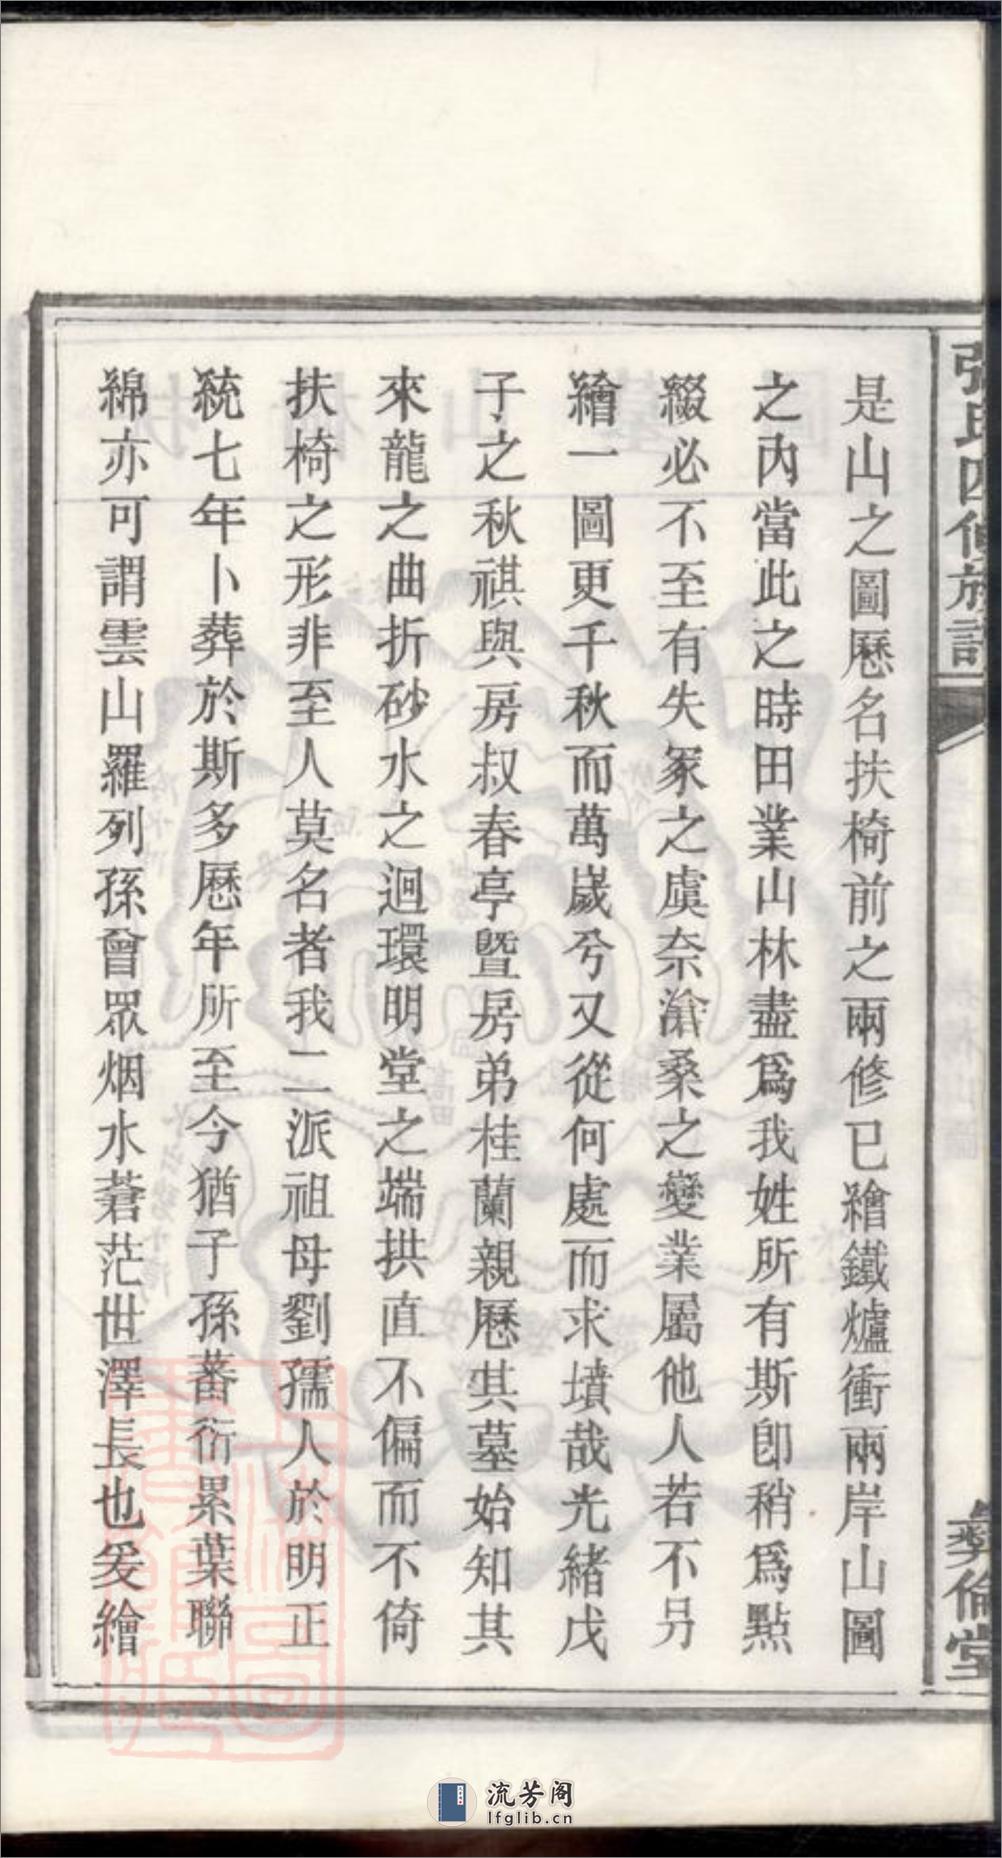 張氏四修族譜
彝倫堂
是山之圖歷名扶椅前之兩修已繪鐵爐衝兩岸山圖
之內當此之時田業山林盡為我姓所有斯卽稍為點
綴必不至有失冢之虞奈滄桑之變業屬他人若不另
繪一圖更千秋而萬歲兮又從何處而求墳哉光緒戊
子之秋祺與房叔春亭暨房弟桂蘭親歷其墓始知其
來龍之曲折砂水之迴環明堂之端拱直不偏而不倚
扶椅之形非至人莫名者我二派祖母劉孺人於明正
統七年卜葬於斯多歷年所至今猶子孫蕃衍累葉聯
綿亦可謂雲山羅列孫曾眾烟水蒼茫世澤長也爰繪
流芳阁
lfglib.cn